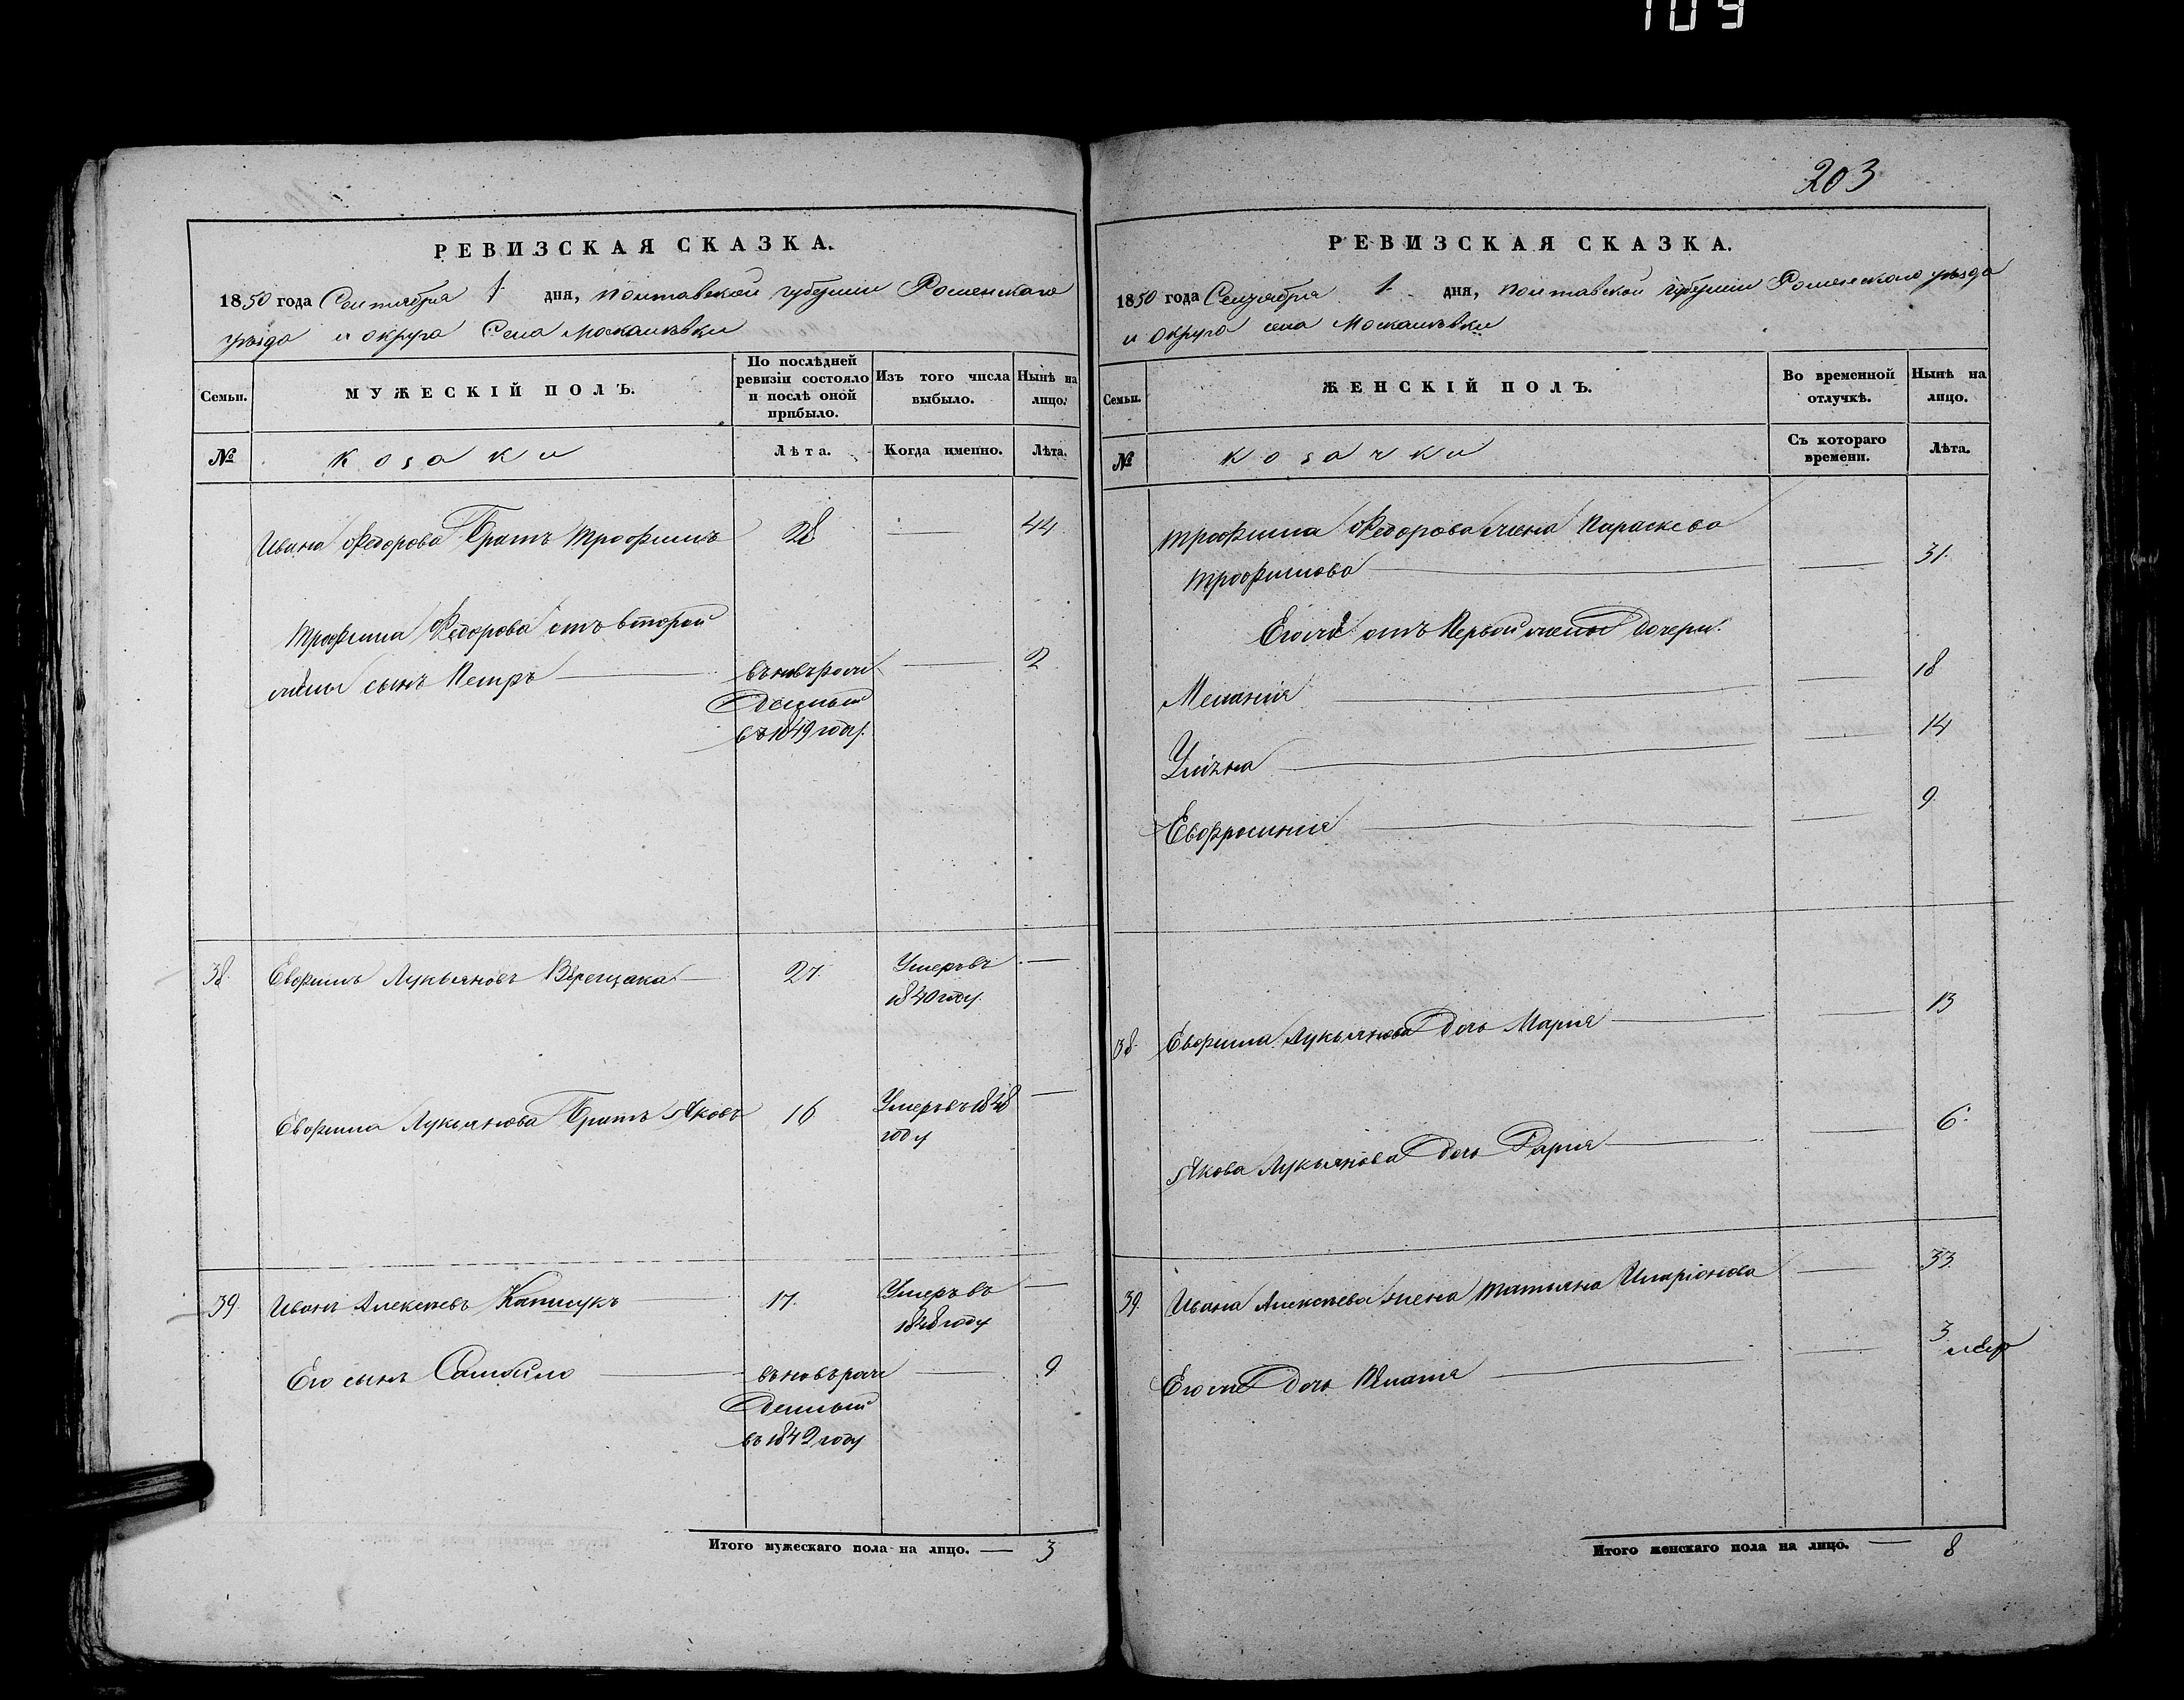 109
203
РЕВИЗСКАЯ СКАЗКА.
1850 года Сентября 1 дня, полтавской губернии Роменскаго
уѣзда и округа Села Москалѣвки
Семьи.
МУЖЕСКІЙ ПОЛЪ.
По послѣдней
ревизіи состояло
и послѣ оной
прибыло.
Изъ того числа
выбыло.
Нынѣ на
лицо.
№
козаки
Лѣта.
Когда именно.
Лѣта.
Ивана Федорова Братъ Трофимъ 28 — 44
Трофима Федорова отъ второй
жены сынъ Петръ — вновьрож — 2
денный
въ 1849 году.
38. Евфимъ Лукьяновъ Верещака — 27. Умеръ въ —
1840 году.
Евфима Лукьянова Братъ Яковъ 16 Умеръ въ 1848 —
году
39. Иванъ Алексѣевъ Капшукъ — 17. Умеръ въ —
1848 году
Его сынъ Самойло — вновьрож — 9
денный
въ 1842 году
Итого мужескаго пола на лицо. — 3
РЕВИЗСКАЯ СКАЗКА.
1850 года Сентября 1 дня, полтавской губерніи Роменскаго уѣзда
и округа села Москалѣвки
Семьи.
ЖЕНСКІЙ ПОЛЪ.
Во временной
отлучкѣ.
Нынѣ на
лицо.
№
козачки
Съ котораго
времени.
Лѣта.
Трофима Федорова жена Параскева
Трофимова — — 31.
Егоже отъ Первой жены дочери.
Меланія — — 18
Ульяна — — 14
Евфросинія — — 9
38. Евфима Лукьянова дочь Марія — — 13
Якова Лукьянова дочь — — 6.
39. Ивана Алексѣева жена Татьяна Иларіонова — 33.
Егоже дочь — — 3
мѣс
Итого женскаго пола на лицо. — 8